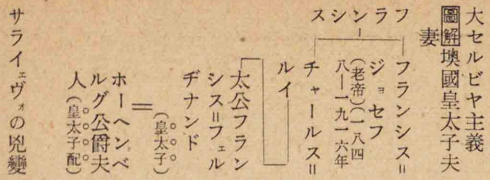 大セルビヤ主義
圖解墺國皇太子夫
妻
フランシス
フランシス＝
ジョセフ
(老帝)(一八四
八―一九一六年
チャールス＝
ルイ
太公フラン
シス＝フェル
ヂナンド
(皇太子)
ホーヘンベ
ルグ公爵夫
人(皇太子配)
サライェヴォの兇變